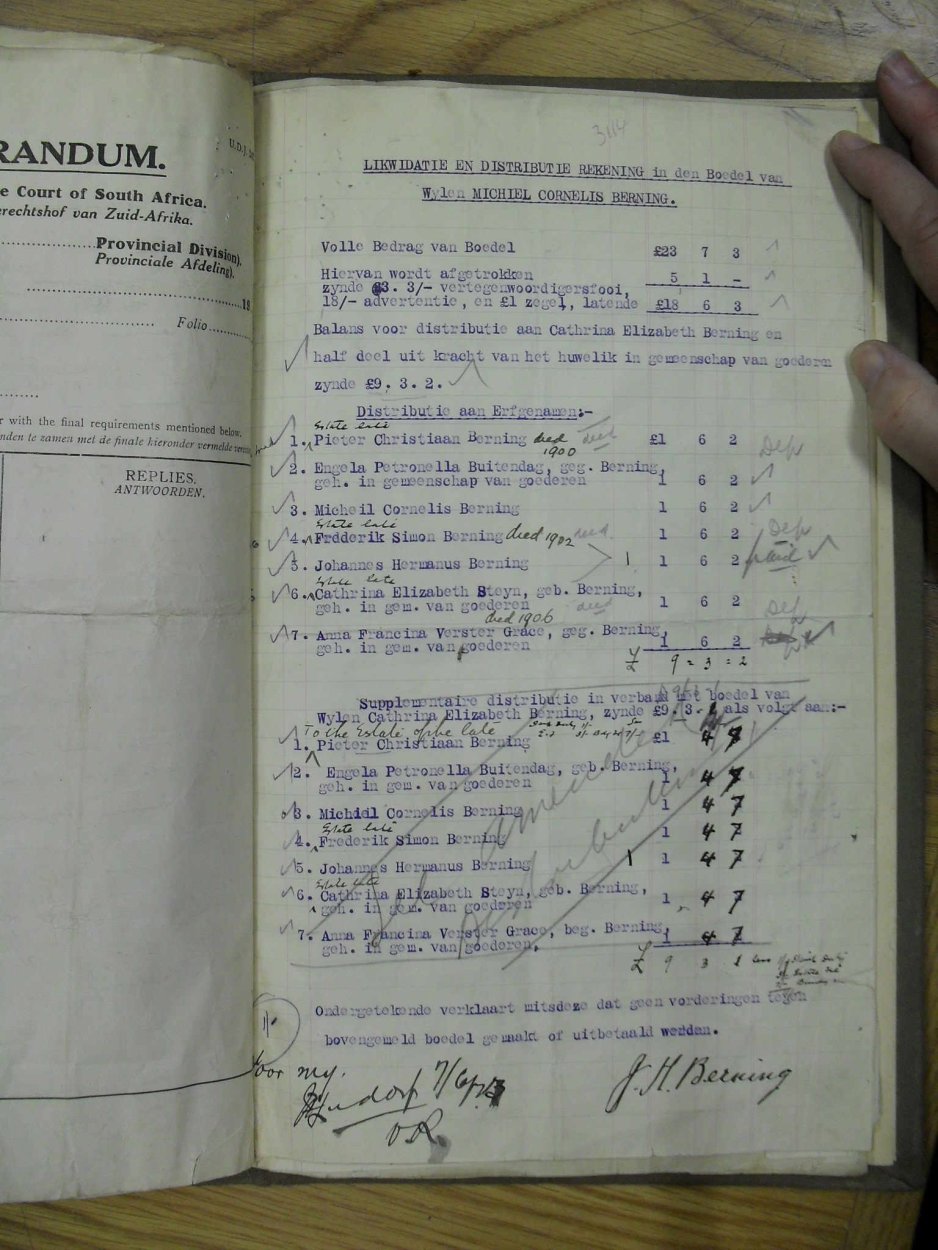 RANDUM.
U.D.J.
e Court of South Africa.
erechtshof van Zuid-Afrika.
Provincial Division).
Provinciale Afdeling).
18
Folio
r with the final requirements mentioned below.
nden te zamen met de finale hieronder vermelde
REPLIES.
ANTWOORDEN.
LIKWIDATIE EN DISTRIBUTIE REKENING in den Boedel van
Wylen MICHIEL CORNELIS BERNING.
Volle Bedrag van Boedel £23 7 3
Hiervan wordt afgetrokken 5 1 -
zynde £3. 3/- vertegenwoordigersfooi,
18/- advertentie, en £1 zegel, latende £18 6 3
Balans voor distributie aan Cathrina Elizabeth Berning en
half deel uit kracht van het huwelik in gemeenschap van goederen
zynde £9. 3. 2.
Distributie aan Erfgenamen:-
Estate late
1. Pieter Christiaan Berning died 1900 died £1 6 2 Dep
2. Engela Petronella Buitendag, geg. Berning,
geh. in gemeenschap van goederen 1 6 2
3. Micheil Cornelis Berning 1 6 2
Estate late
4. Frdderik Simon Berning died 1902 died. 1 6 2 Dep
5. Johannes Hermanus Berning 1 1 6 2 paid
Estate late
6. Cathrina Elizabeth Steyn, geb. Berning,
geh. in gem. van goederen died 1 6 2 Dep
died 1906
7. Anna Francina Verster Grace, geg. Berning,
geh. in gem. van goederen 1 6 2
£ 9 = 3 = 2
Supplementaire distributie in verband met boedel van
Wylen Cathrina Elizabeth Berning, zynde £9. 3. 1 als volgt aan:-
To the Estate of the late
1. Pieter Christiaan Berning £1 4 7
2. Engela Petronella Buitendag, geb. Berning,
geh. in gem. van goederen 1 4 7
3. Michidl Cornelis Berning 1 4 7
Estate late
4. Frederik Simon Berning 1 4 7
5. Johannes Hermanus Berning 1 1 4 7
Estate late
6. Cathrina Elizabeth Steyn, geb. Berning,
geh. in gem. van goederen 1 4 7
7. Anna Francina Verster Grace, beg. Berning,
geh. in gem. van goederen. 1 4 7
£ 9 3 1 less
Ondergetekende verklaart mitsdeze dat geen vorderingen tegen
bovengemeld boedel gemaakt of uitbetaald werdan.
1/-
Voor my.
J. H. Berning